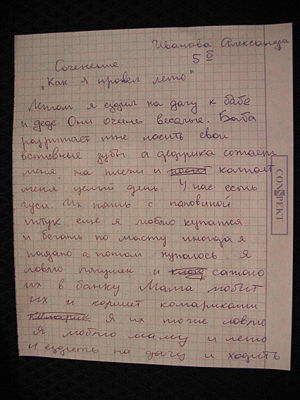 Иванова Александра
5 Б
Сочинение
"Как я провел лето"
Летом я ездил на дачу к бабе
и деде. Они очень веселые. Баба
разришает мне носить свои
вставные зубы а дедушка сожает
меня на плечи и катает
меня целый день. У нас есть
гуси. Их пять с паловиной
штук еще я люблю купатся
и бегать по мосту иногда я
падаю а потом купаюсь Я
ловлю лягушек и сажаю
их в банку Мама любит
их и кормит комариками
комарик Я их тоже ловлю
Я люблю маму и лето
и ездеть на дачу и ходить
CONSPEKT